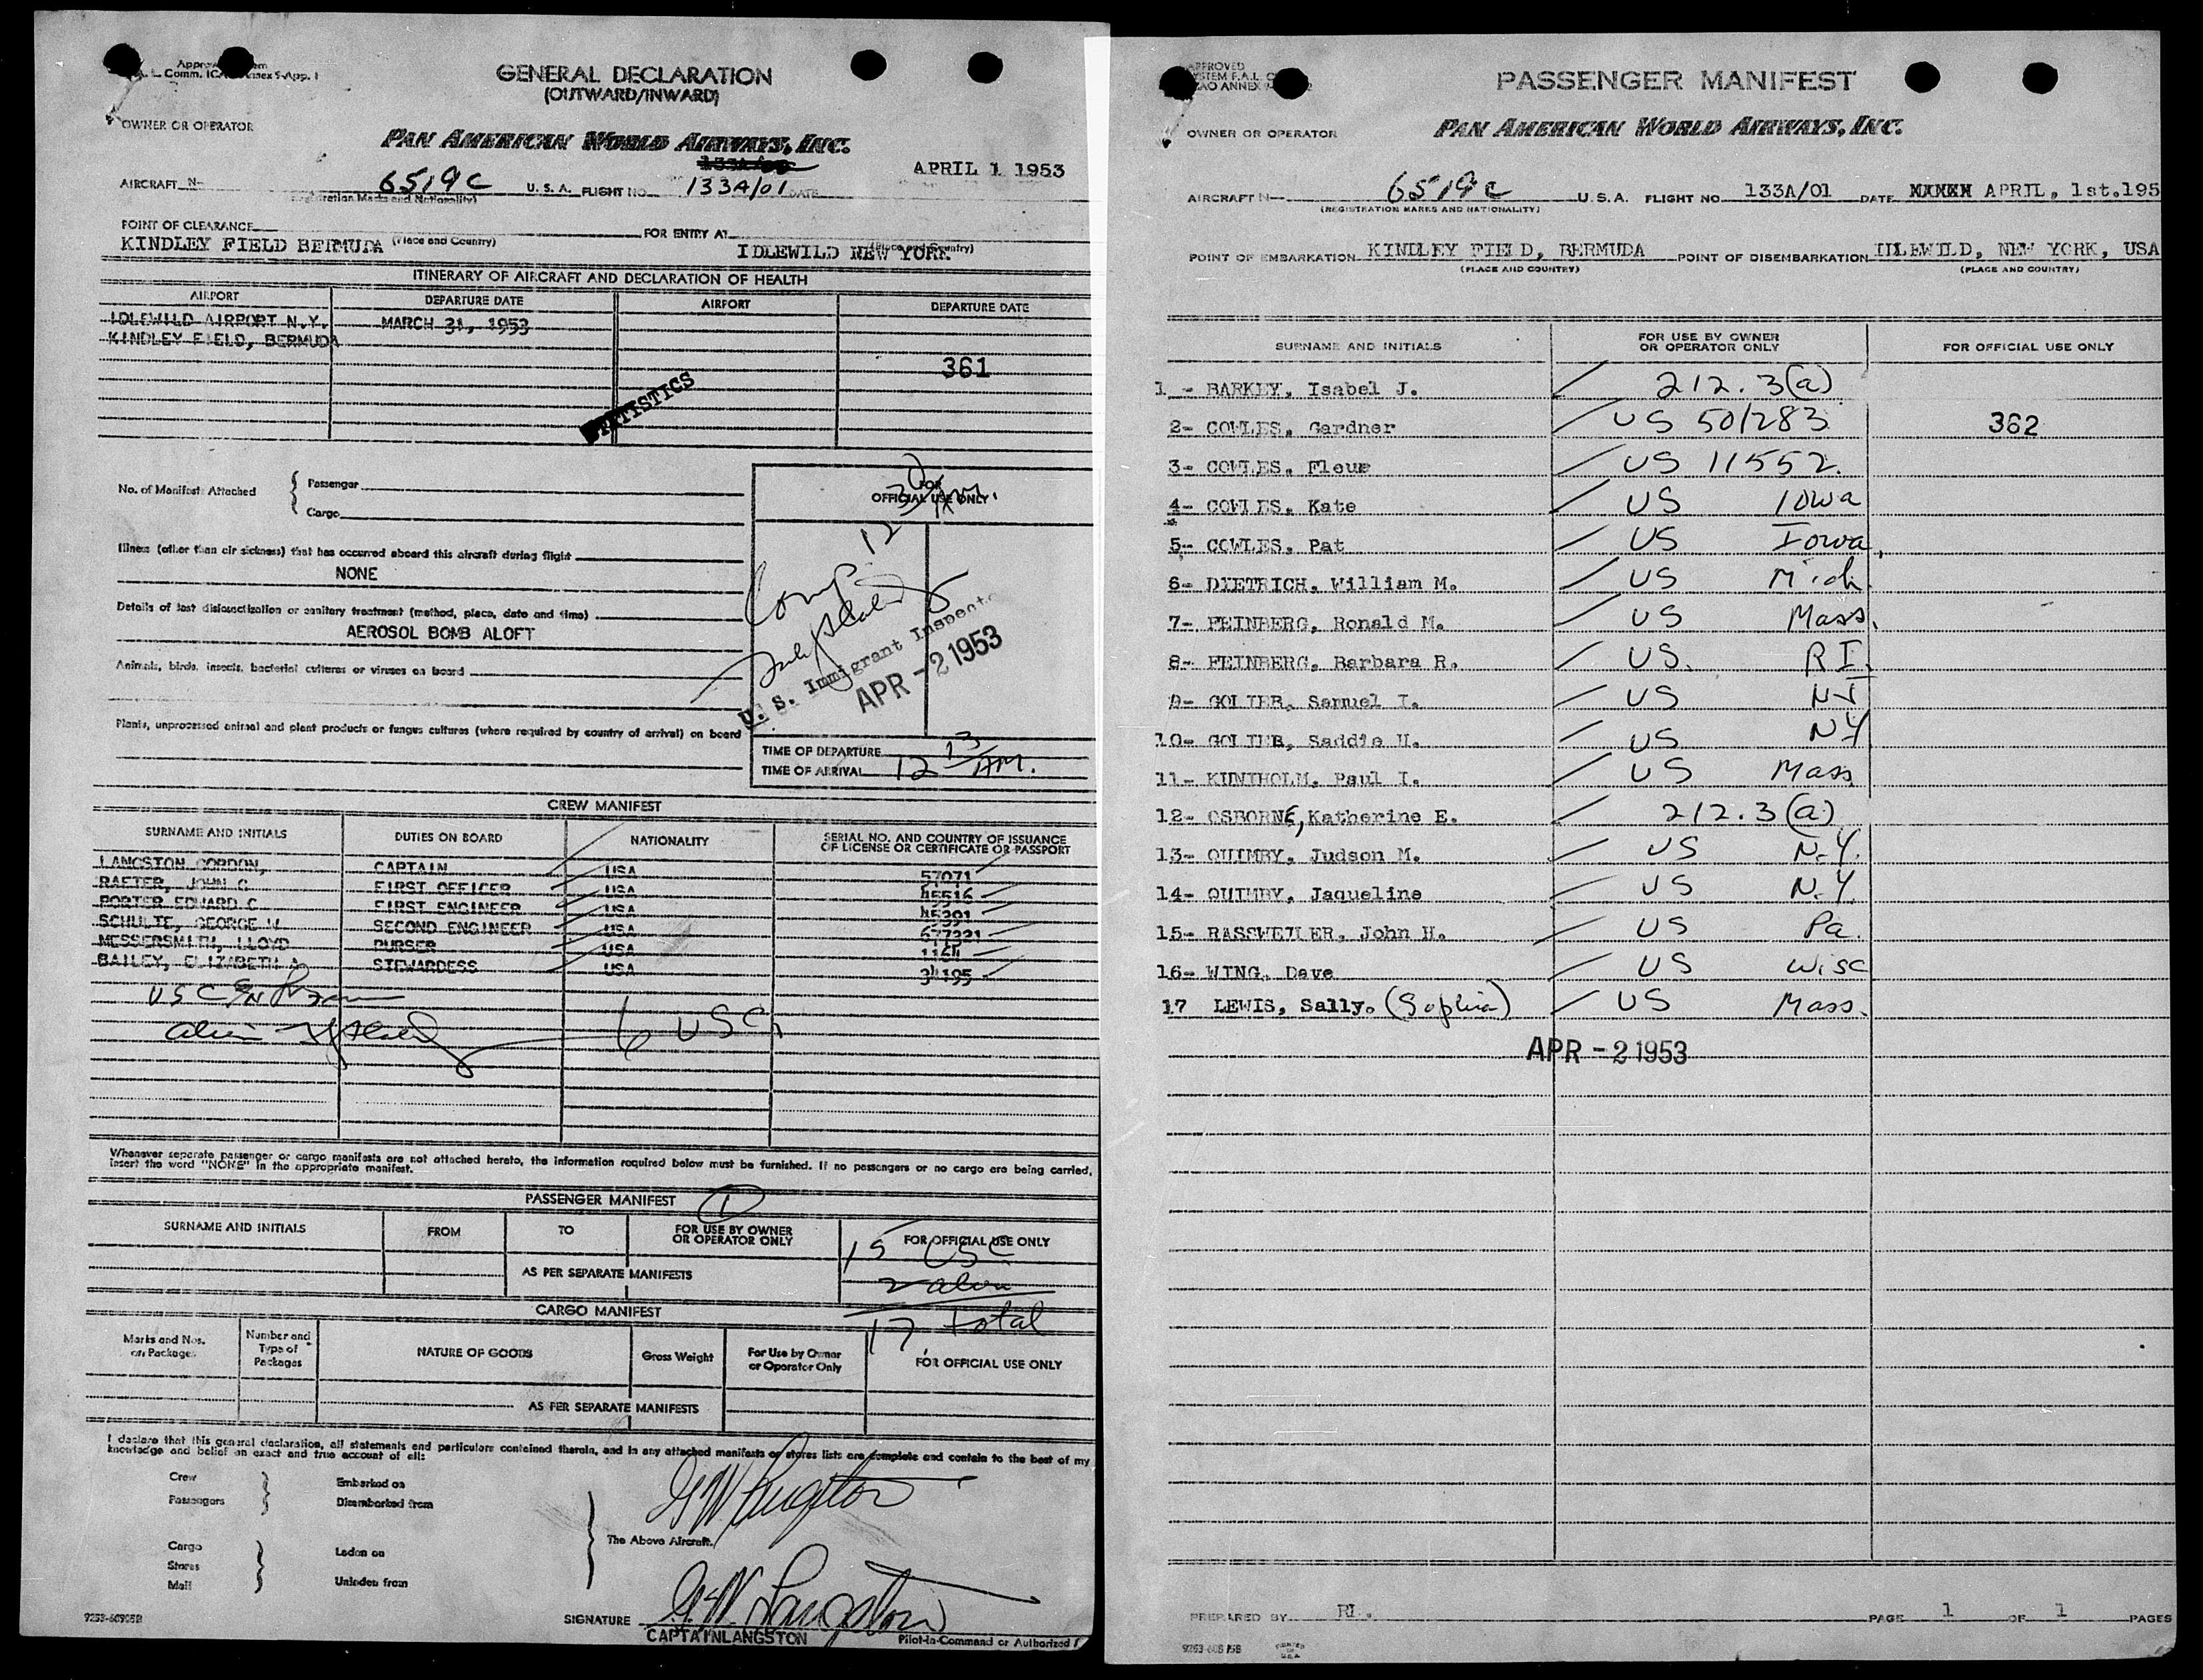 GENERAL DECLARATION
(OUTWARD/INWARD)
OWNER OR OPERATOR
PAN AMERICAN WORLD AIRWAYS, INC.
APRIL 1 1953
AIRCRAFT N- 6519C U.S.A. FLIGHT NO. 133A/01 DATE
(Registration Marks and Nationality)
POINT OF CLEARANCE FOR ENTRY AT
KINDLEY FIELD BERMUDA (Place and Country) IDLEWILD NEW YORK (Place and Country)
ITINERARY OF AIRCRAFT AND DECLARATION OF HEALTH
AIRPORT DEPARTURE DATE AIRPORT DEPARTURE DATE
IDLEWILD AIRPORT N.Y. MARCH 31, 1953
KINDLEY FIELD, BERMUDA
361
STATISTICS
No. of Manifests Attached { Passenger
Cargo
FOR
OFFICIAL USE ONLY
Illness (other than air sickness) that has occurred aboard this aircraft during flight
NONE
Details of last disinsectization or sanitary treatment (method, place, date and time)
AEROSOL BOMB ALOFT
Animals, birds, insects, bacterial cultures or viruses on board
U. S. Immigrant Inspector
APR -2 1953
Plants, unprocessed animal and plant products or fungus cultures (where required by country of arrival) on board
TIME OF DEPARTURE
TIME OF ARRIVAL 12 13 AM.
CREW MANIFEST
SURNAME AND INITIALS DUTIES ON BOARD NATIONALITY SERIAL NO. AND COUNTRY OF ISSUANCE
OF LICENSE OR CERTIFICATE OR PASSPORT
LANGSTON GORDON, CAPTAIN USA 57071
RAFTER, JOHN C FIRST OFFICER USA 45516
PORTER EDWARD C FIRST ENGINEER USA 45391
SCHULTE, GEORGE W SECOND ENGINEER USA 677321
MESSERSMITH, LLOYD PURSER USA 1164
BAILEY, ELIZABETH A STEWARDESS USA 34195
6 USC
Whenever separate passenger or cargo manifests are not attached hereto, the information required below must be furnished. If no passengers or no cargo are being carried,
insert the word "NONE" in the appropriate manifest.
PASSENGER MANIFEST 1
SURNAME AND INITIALS FROM TO FOR USE BY OWNER
OR OPERATOR ONLY FOR OFFICIAL USE ONLY
15 USC
AS PER SEPARATE MANIFESTS
2 alien
17 total
CARGO MANIFEST
Marks and Nos.
on Packages Number and
Type of
Packages NATURE OF GOODS Gross Weight For Use by Owner
or Operator Only FOR OFFICIAL USE ONLY
AS PER SEPARATE MANIFESTS
I declare that this general declaration, all statements and particulars contained therein, and in any attached manifests or stores lists are complete and contain to the best of my
knowledge and belief an exact and true account of all:
Crew Embarked on
Passengers Disembarked from
G W Langston
The Above Aircraft.
Cargo Laden on
Stores
Mail Unladen from
SIGNATURE G W Langston
CAPTAINLANGSTON Pilot-in-Command or Authorized
9253-60905B
APPROVED
PASSENGER MANIFEST
OWNER OR OPERATOR
PAN AMERICAN WORLD AIRWAYS, INC.
AIRCRAFT N- 6519C U.S.A. FLIGHT NO. 133A/01 DATE APRIL, 1st.195
(REGISTRATION MARKS AND NATIONALITY)
POINT OF EMBARKATION KINDLEY FIELD, BERMUDA POINT OF DISEMBARKATION IDLEWILD, NEW YORK, USA
(PLACE AND COUNTRY) (PLACE AND COUNTRY)
SURNAME AND INITIALS FOR USE BY OWNER
OR OPERATOR ONLY FOR OFFICIAL USE ONLY
1 - BARKEY, Isabel J. 212.3(a)
2- COWLES, Gardner US 501283 362
3- COWLES, Fleur US 11552.
4- COWLES, Kate US Iowa
5- COWLES, Pat US Iowa,
6- DIETRICH, William M. US Mich.
7- FEINBERG, Ronald M. US Mass.
8- FEINBERG, Barbara R. US. RI.
9- GOLIEB, Samuel I. US NY
10- GOLIEB, Saddie H. US NY
11- KUNIHOLM, Paul I. US Mass
12- OSBORNE, Katherine E. 212.3(a)
13- QUIMBY, Judson M. US N.Y.
14- QUIMBY, Jaqueline US N.Y.
15- RASSWEILER, John H. US Pa.
16- WING, Dave US Wisc
17 LEWIS, Sally. (Sophia) US Mass.
APR -2 1953
PREPARED BY RL. PAGE 1 OF 1 PAGES